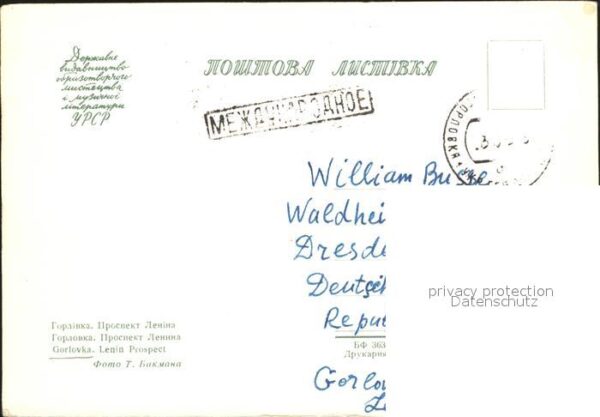 Державне
видавництво
образотворчого
мистецтва
і музичної
літератури
УРСР
ПОШТОВА ЛИСТІВКА
МЕЖДУНАРОДНОЕ
ГОРЛОВКА
William
Waldhei
Dresde
Deutsc
Repu
privacy protection
Datenschutz
Горлівка. Проспект Леніна
Горловка. Проспект Ленина
Gorlovka. Lenin Prospect
Фото Т. Бакмана
БФ 363
Друкарня
Gorlov